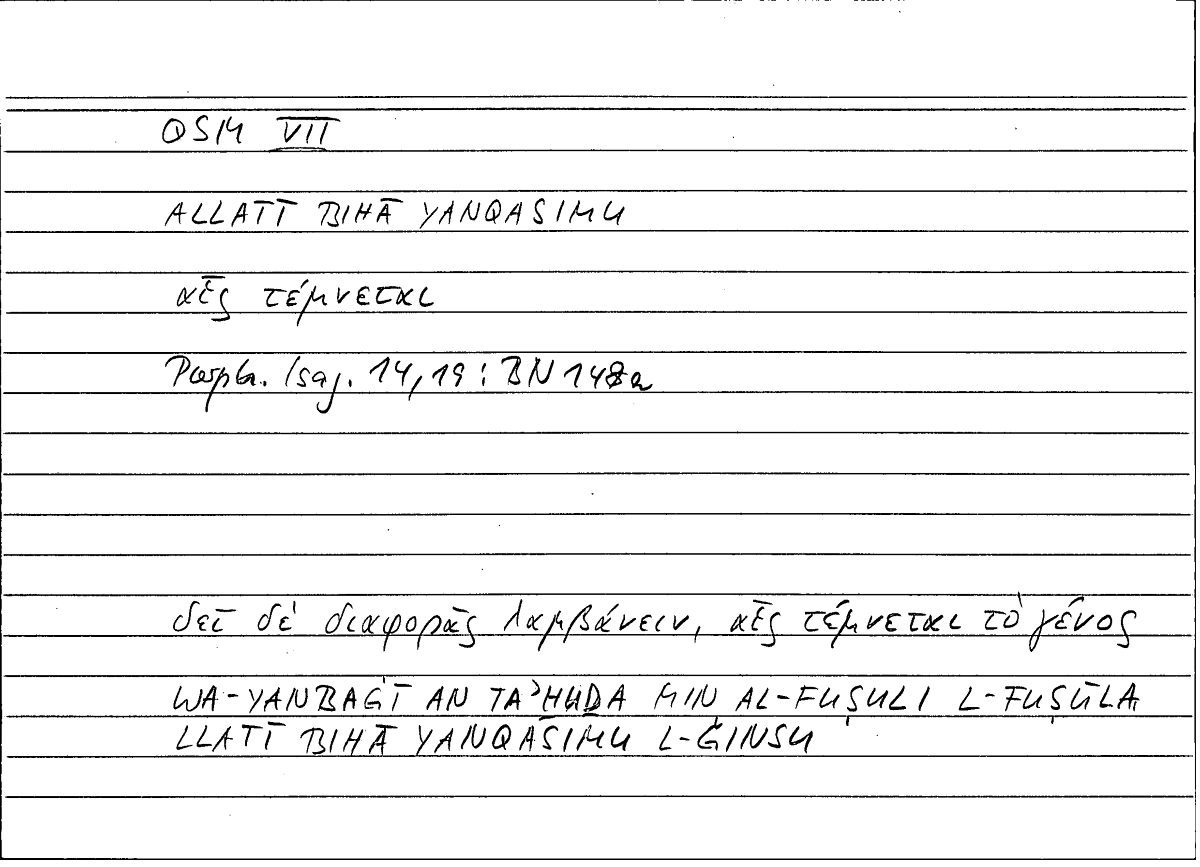 QSM VII
ALLATĪ BIHĀ YANQASIMU
αἷς τέμνεται
Porph. Isag. 14,19 : BN 148a
δεῖ δὲ διαφορᾶς λαμβάνειν, αἷς τέμνεται τὸ γένος
WA-YANBAĠĪ AN TAʾḪUḎA MIN AL-FUṢULI L-FUṢŪLA
LLATĪ BIHĀ YANQASIMU L-ǦINSU